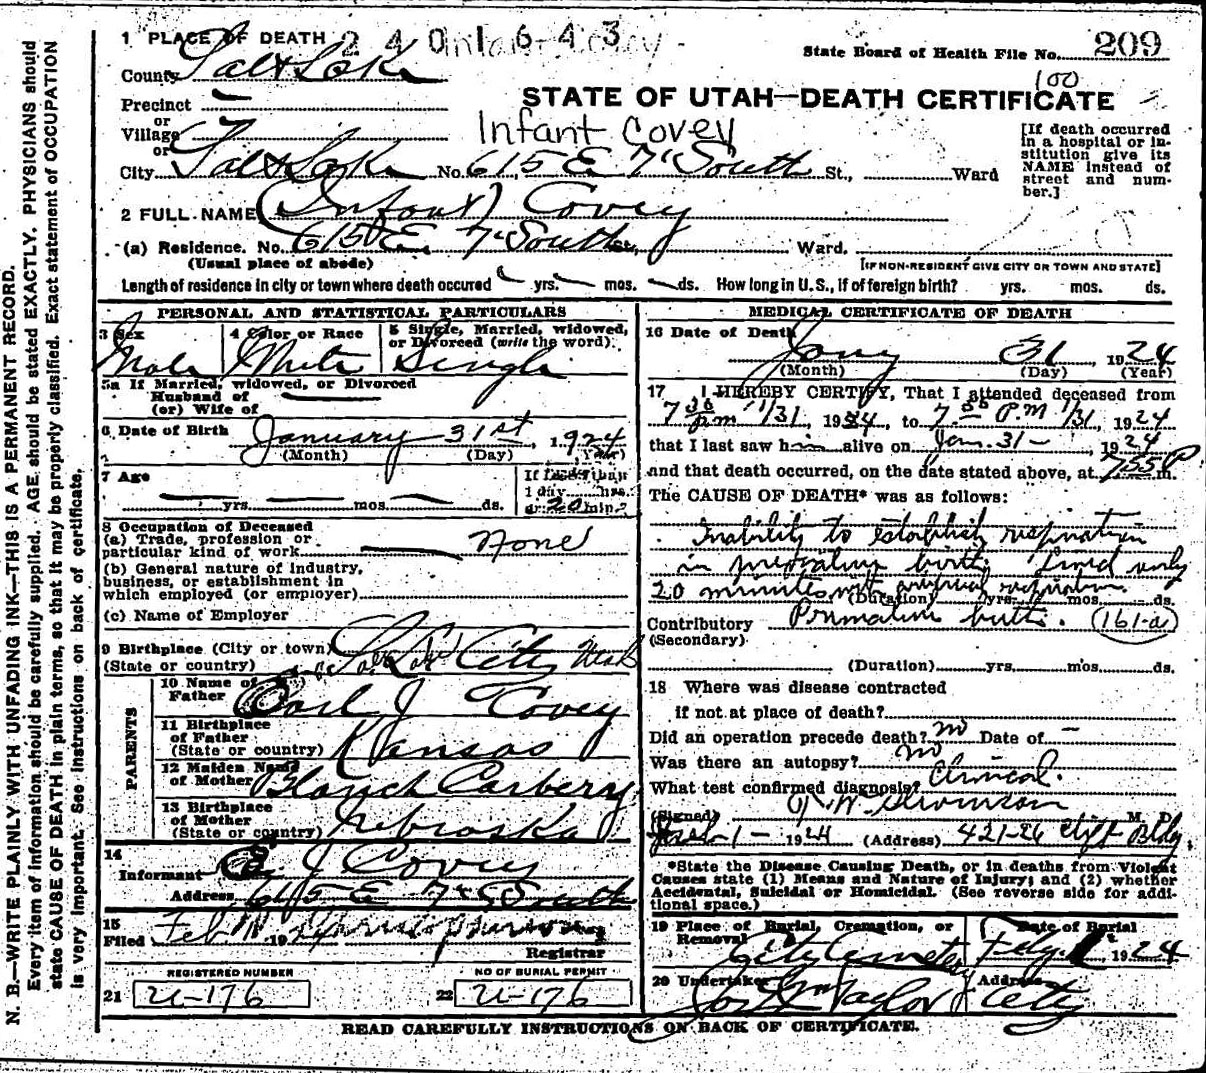 1 PLACE OF DEATH 2401643
State Board of Health File No. 209
County Salt Lake
100
STATE OF UTAH—DEATH CERTIFICATE
Precinct
or
Village
or
Infant Covey
[If death occurred in a hospital or institution give its NAME instead of street and number.]
City Salt Lake No. 615 E 7th South St., Ward
2 FULL NAME (Infant) Covey
(a) Residence. No. 615 E. 7th South St., Ward.
(Usual place of abode)
[IF NON-RESIDENT GIVE CITY OR TOWN AND STATE]
Length of residence in city or town where death occured yrs. mos. ds. How long in U. S., if of foreign birth? yrs. mos. ds.
PERSONAL AND STATISTICAL PARTICULARS
3 Sex
Male
4 Color or Race
White
5 Single, Married, widowed, or Divorced (write the word).
Single
5a If Married, widowed, or Divorced
Husband of
(or) Wife of
6 Date of Birth January 31st, 1924
(Month) (Day) (Year)
7 Age
yrs. mos. ds.
If less than
1 day hrs.
or 20 min.?
8 Occupation of Deceased
(a) Trade, profession or particular kind of work None
(b) General nature of industry, business, or establishment in which employed (or employer)
(c) Name of Employer
9 Birthplace (City or town) Salt Lake City Utah
(State or country)
PARENTS
10 Name of Father Carl J Covey
11 Birthplace of Father (State or country) Kansas
12 Maiden Name of Mother Blanch Carbery
13 Birthplace of Mother (State or country) Nebraska
14
Informant C J Covey
Address 615 E 7th South
15
Filed Feb 19
Registrar
REGISTERED NUMBER
21 U-176
NO OF BURIAL PERMIT
22 U-176
MEDICAL CERTIFICATE OF DEATH
16 Date of Death
Jany 31, 1924
(Month) (Day) (Year)
17 I HEREBY CERTIFY, That I attended deceased from
7 30 pm 1/31, 1924, to 7.55 P.M 1/31, 1924
that I last saw him alive on Jan. 31-, 1924
and that death occurred, on the date stated above, at 755 P m.
The CAUSE OF DEATH* was as follows:
Inability to establish respiration
in premature birth. Lived only
20 minutes with artificial respiration.
(Duration) yrs. mos. ds.
Contributory Premature birth. (161-a)
(Secondary)
(Duration) yrs. mos. ds.
18 Where was disease contracted
if not at place of death?
Did an operation precede death? no Date of -
Was there an autopsy? no
What test confirmed diagnosis? Clinical.
(Signed) M. D.
-1- 1924 (Address) 421-26 Clift Bldg.
*State the Disease Causing Death, or in deaths from Violent Causes state (1) Means and Nature of Injury; and (2) whether Accidental, Suicidal or Homicidal. (See reverse side for additional space.)
19 Place of Burial, Cremation, or Removal
City Cemetery
Date of Burial
Feby. 1924
20 Undertaker
Taylor
Address
City
READ CAREFULLY INSTRUCTIONS ON BACK OF CERTIFICATE.
N. B.—WRITE PLAINLY WITH UNFADING INK—THIS IS A PERMANENT RECORD.
Every item of information should be carefully supplied. AGE should be stated EXACTLY. PHYSICIANS should
state CAUSE OF DEATH in plain terms, so that it may be properly classified. Exact statement of OCCUPATION
is very important. See instructions on back of certificate.